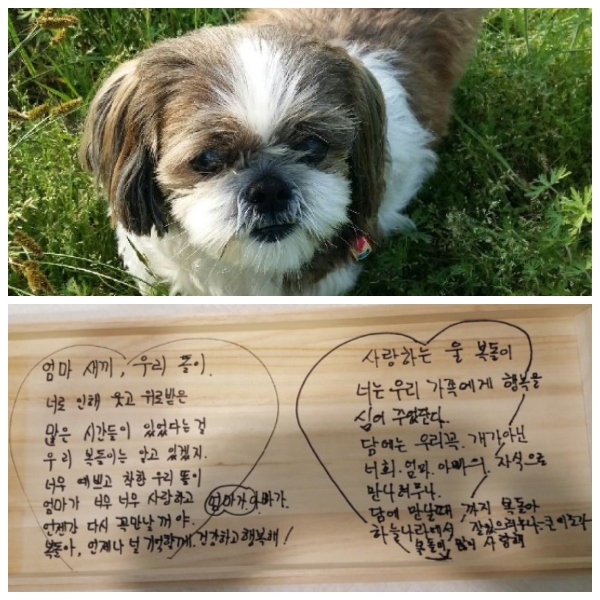 엄마 새끼, 우리 똘이.
너로 인해 웃고 위로받은
많은 시간들이 있었다는걸
우리 복돌이는 알고 있겠지.
너무 예쁘고 착한 우리 똘이
엄마가 너무 너무 사랑하고 엄마가, 아빠가.
언젠가 다시 꼭 만날꺼야.
복돌아, 언제나 널 기억할께. 건강하고 행복해!
사랑하는 울 복돌이
너는 우리 가족에게 행복을
심어 주었단다.
담에는 우리꼭. 개가아닌
너희. 엄마. 아빠의. 자식으로
만나려무나.
담에 만날때 까지 복돌아
하늘나라에서 잘있으려무나~ 큰이모가
복돌이 많이 사랑해